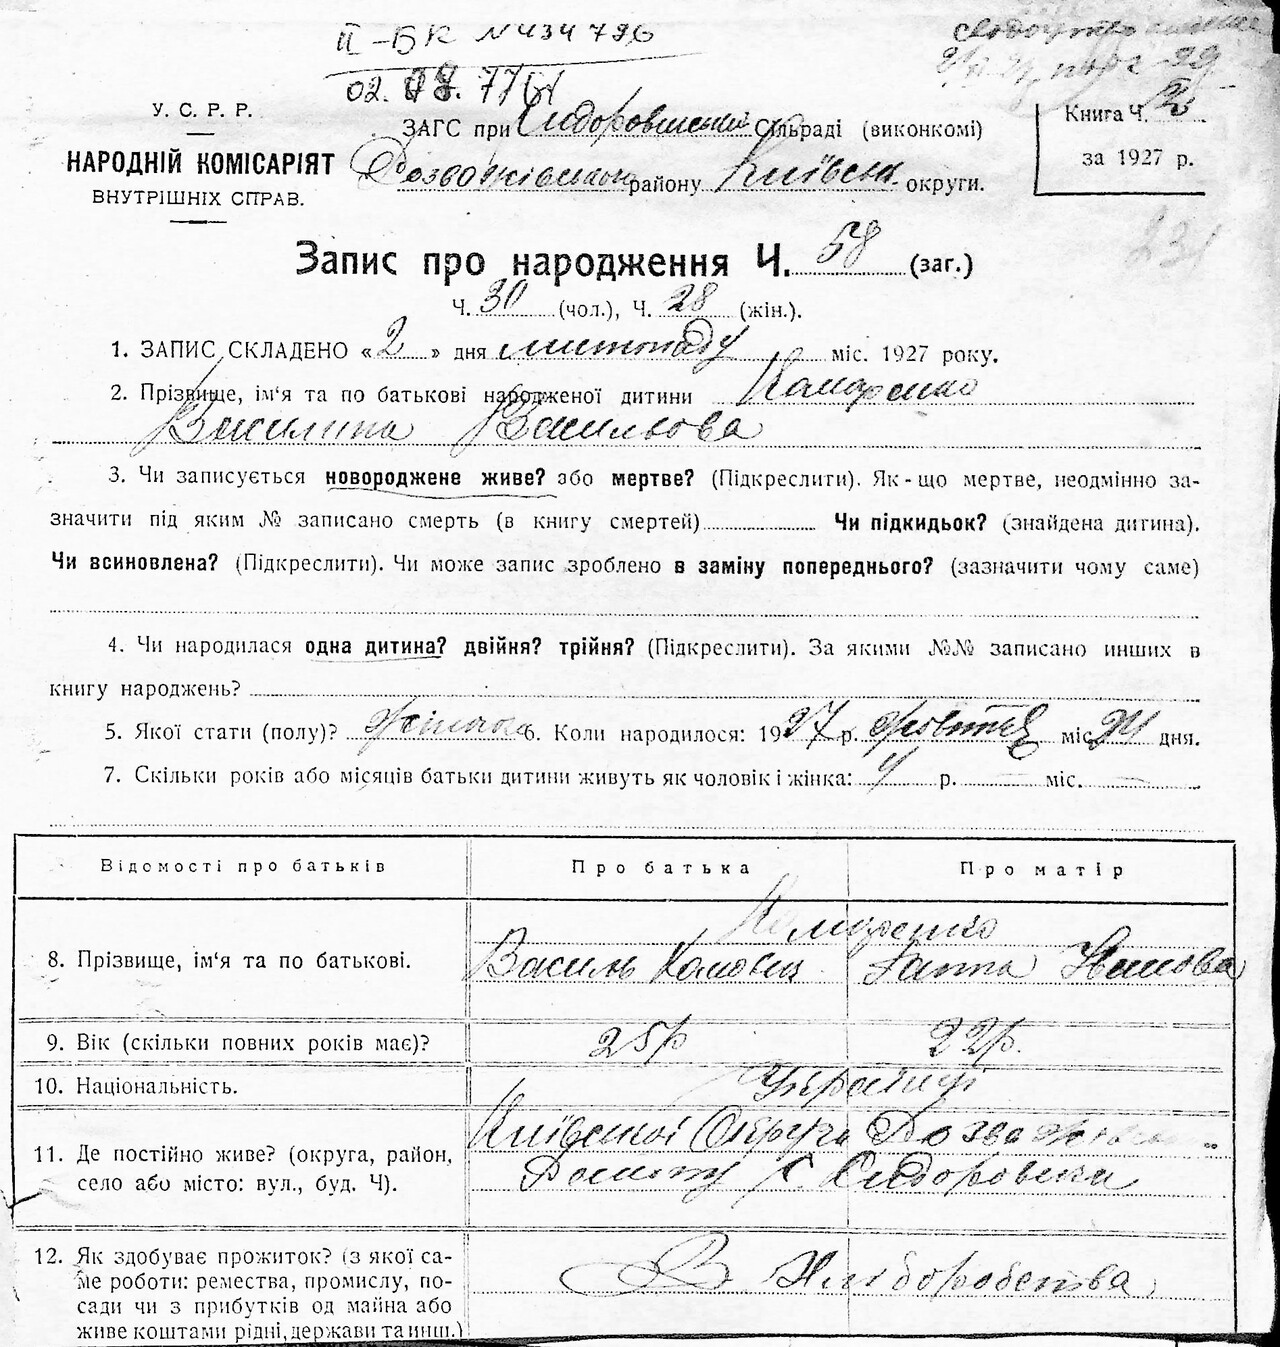 ІІ-БК № 434796
02. 08. 77
У. С. Р. Р.
НАРОДНІЙ КОМІСАРІЯТ
ВНУТРІШНІХ СПРАВ.
ЗАГС при Сидоровській Сільраді (виконкомі)
Розважівського району Київськ. округи.
Книга Ч. 2
за 1927 р.
231
Запис про народження Ч. 58 (заг.)
Ч. 30 (чол.), Ч. 28 (жін.).
1. ЗАПИС СКЛАДЕНО «2» дня листопаду міс. 1927 року.
2. Прізвище, ім'я та по батькові народженої дитини Комаренко
Василина Васильова
3. Чи записується новороджене живе? або мертве? (Підкреслити). Як-що мертве, неодмінно за-
значити під яким № записано смерть (в книгу смертей) Чи підкидьок? (знайдена дитина).
Чи всиновлена? (Підкреслити). Чи може запис зроблено в заміну попереднього? (зазначити чому саме)
4. Чи народилася одна дитина? двійня? трійня? (Підкреслити). За якими №№ записано инших в
книгу народжень?
5. Якої стати (полу)? жіночка 6. Коли народилося: 1927 р. жовтня міс. 24 дня.
7. Скільки років або місяців батьки дитини живуть як чоловік і жінка: 4 р. — міс. —
Відомості про батьків Про батька Про матір
Комаренко
8. Прізвище, ім'я та по батькові. Василь Ганна Іванова
9. Вік (скільки повних років має)? 25р 22р.
10. Національність. Українці
11. Де постійно живе? (округа, район, Київської Округи Розважівськ..
село або місто: вул., буд. Ч). с. Сидоровичи
12. Як здобуває прожиток? (з якої са-
ме роботи: ремества, промислу, по- З Хліборобства
сади чи з прибутків од майна або
живе коштами рідні, держави та инш.)